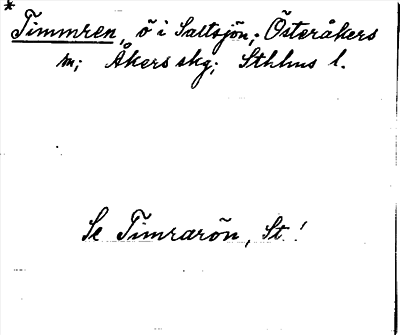 * Timmren, ö i Saltsjön; Österåkers
sn; Åkers skg; Sthlms l.
Se Timrarön, St.!